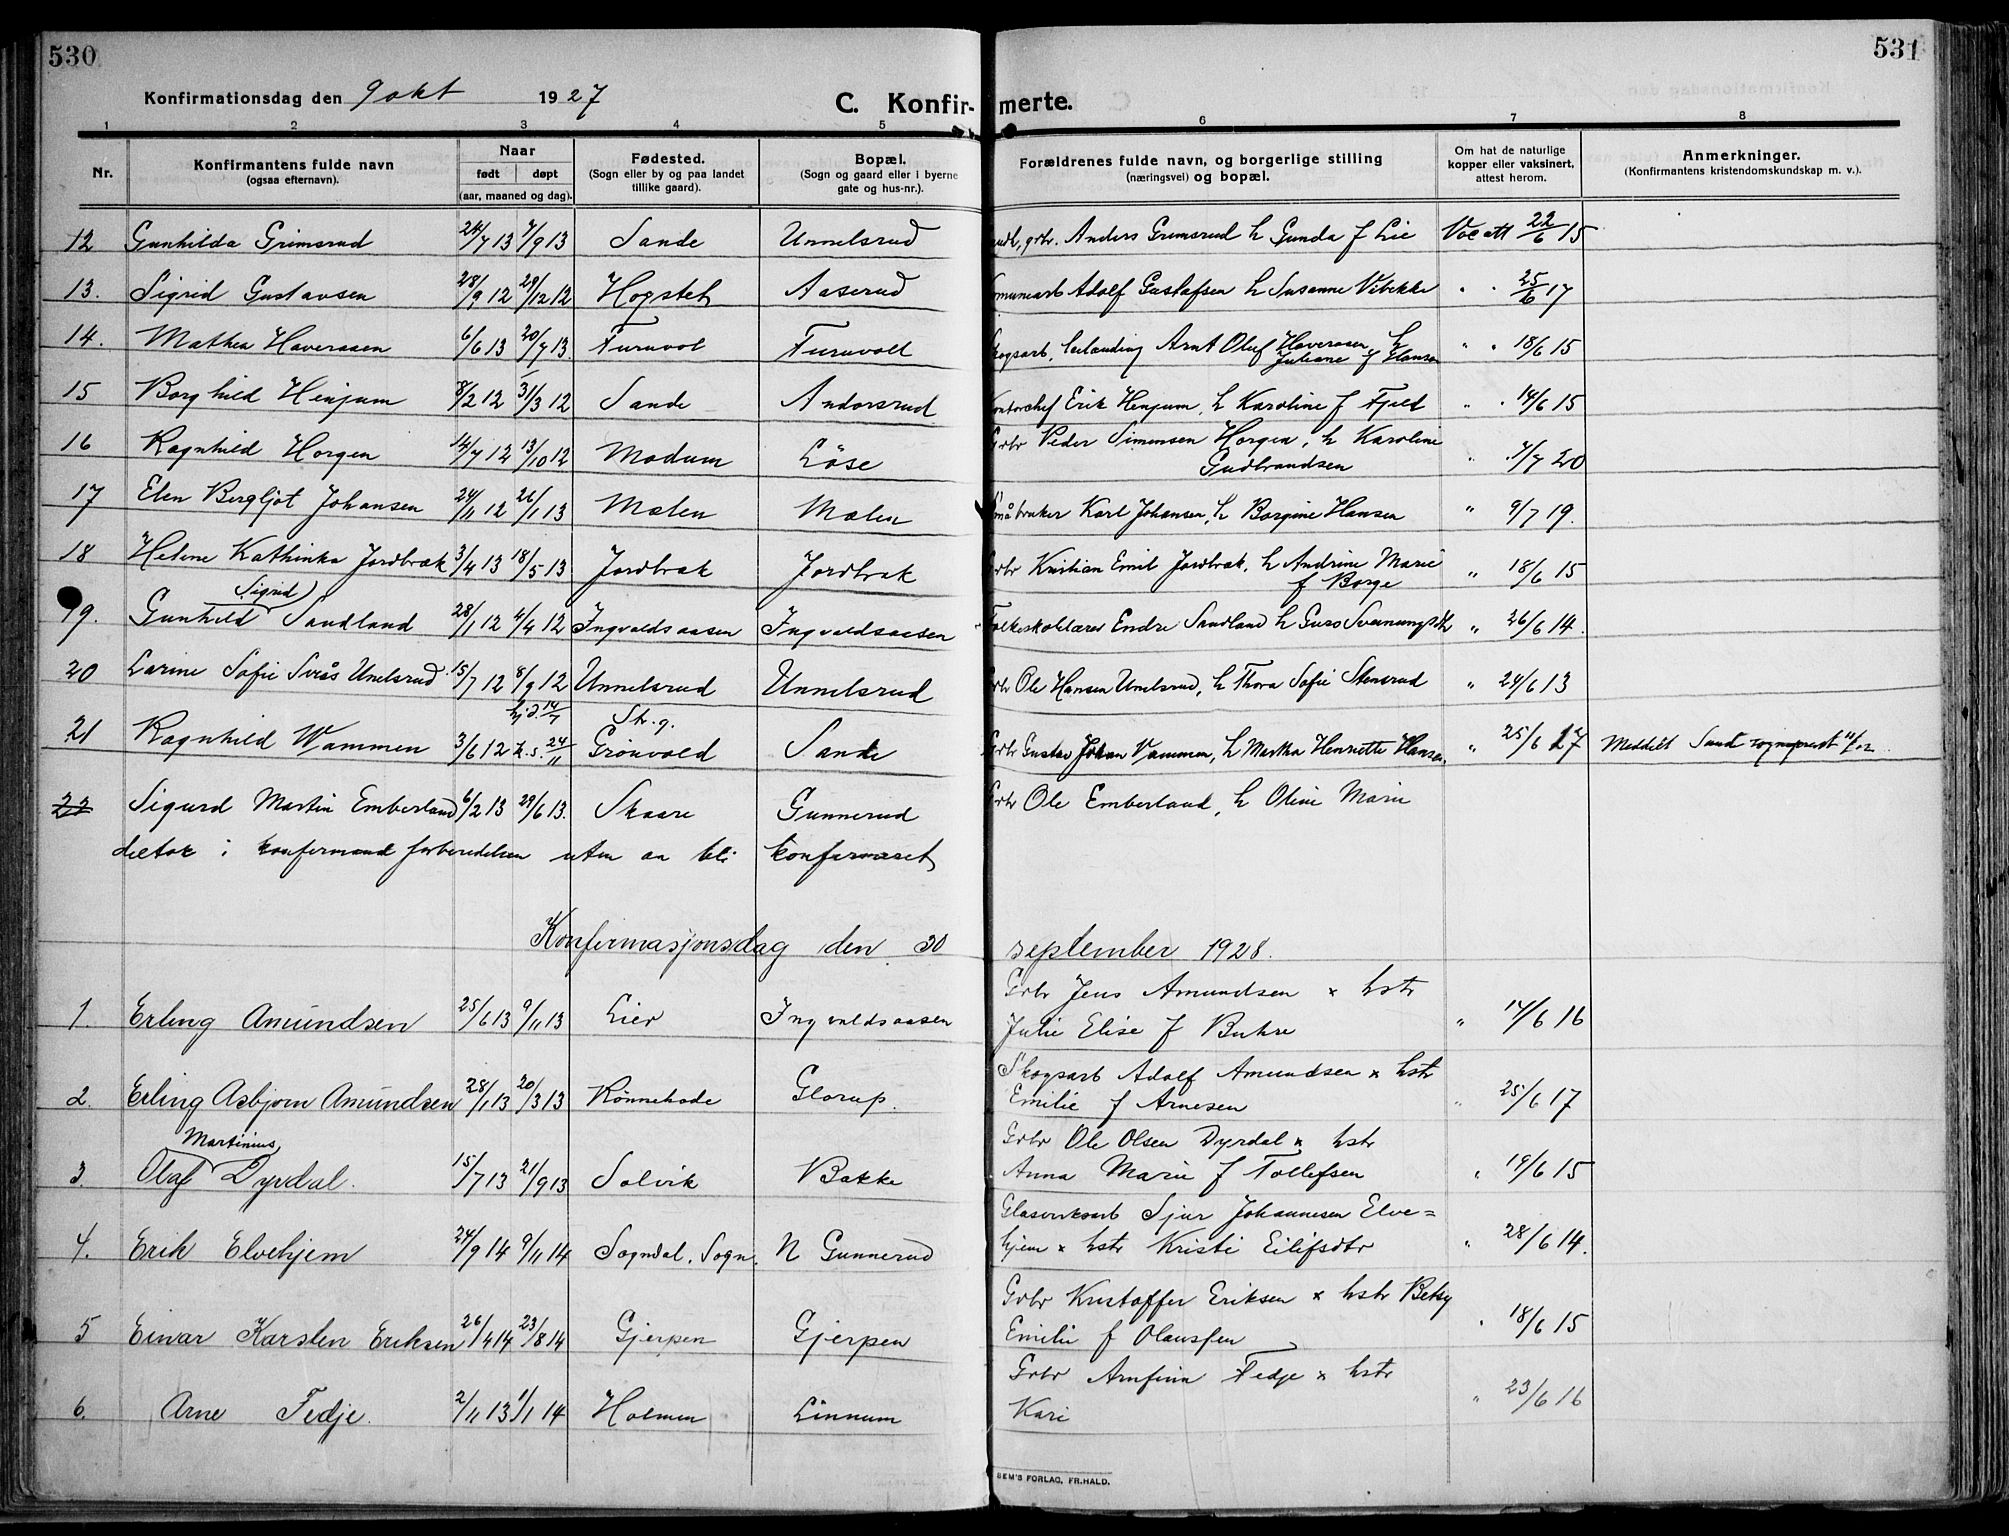 530
531
Konfirmationsdag den 9 okt 1927
C. Konfir- merte.
1 2 3 4 5 6 7 8
Nr.
Konfirmantens fulde navn
(ogsaa efternavn).
Naar
født døpt
(aar, maaned og dag).
Fødested.
(Sogn eller by og paa landet
tillike gaard).
Bopæl.
(Sogn og gaard eller i byerne
gate og hus-nr.).
Forældrenes fulde navn, og borgerlige stilling
(næringsvei) og bopæl.
Om hat de naturlige
kopper eller vaksinert,
attest herom.
Anmerkninger.
(Konfirmantens kristendomskundskap m. v.).
12 Gunhilda Grimsrud 24/7 13 7/9 13 Sande Unnelsrud grbr. Anders Grimsrud h Gunda f Lie Vac att 22/6 15
13. Sigrid Gustavsen 28/9 12 29/12 12 Hogstet Aaserud Adolf Gustafsen h Susanne Vibekke " " 25/6 17
14. Mathea Haveraaen 6/6 13 20/7 13 Furuvol Furuvold Arnt Oluf Haveraaen h " " 18/6 15
Juliane f Hansen
15 Borghild Henjum 8/2 12 31/3 12 Sande Andorsrud Kontorchef Erik Henjum, h Karoline f Fjeld " " 14/6 15
16 Ragnhild Horgen 14/7 12 13/10 12 Modum Løse Grbr Peder Simensen Horgen, h Karoline " 7/7 20
Gudbrandsen
17 Elen Bergljot Johansen 24/11 12 26/1 13 Mælen Mælen Småbruker Karl Johansen, h Borgine Hansen " 9/7 19.
18 Helene Kathinka Jordbræk 3/4 13 18/5 13 Jordbræk Jordbræk Grbr Kristian Emil Jordbræk, h Andrine Marie " 18/6 15
f Borge
Sigrid
19. Gunhild Sandland 28/1 12 4/4 12 Ingvaldsaasen Ingvaldsaasen Folkeskolelærer Endre Sandland h Guro " 26/6 14.
20 Larine Sofie Unelsrud 15/7 12 8/9 12 Unnelsrud Unnelsrud Grbr Ole Hansen Unelsrud, h Thora Sofie Stensrud " 24/6 13
hj.d. 14/7 Str. g.
21 Ragnhild Wammen 3/6 12 k.s. 24/11 Grønvold Sande Grbr Gustav Johan Vammen, h Martha Henriette Hansen " 25/6 27 Meddelt Sande sogneprest
22 Sigurd Martin Emberland 6/2 13 29/6 13. Skaare Gunnerud Grbr Ole Emberland, h Oline Marie
deltok i konfirmand forberedelsen uten aa bli konfirmeret
Konfirmasjonsdag den 30 september 1928.
Grbr Jens Amundsen x hstr
1. Erling Amundsen 25/6 13 9/11 13 Lier Ingvaldsaasen Julie Elise f Buhre " 14/6 16
Skogsarb Adolf Amundsen x hstr
2. Erling Asbjørn Amundsen 28/1 13 20/3 13 Rønnehode Glorup. Emilie f Arnesen " 25/6 17
Martinius Grbr Ole Olsen Dyrdal x hstr
3. Olaf Dyrdal. 15/7 13 21/9 13 Solvik Bakke Anna Marie f Tollefsen " 19/6 15
Glasverksarb Sjur Johannesen Elve=
4. Erik Elvehjem 24/9 14 9/11 14 Sogndal. Sogn. N Gunnerud hjem x hstr Kristi Eilifsdtr " 28/6 14.
Grbr Kristoffer Eriksen x hstr Betsy
5 Einar Karsten Eriksen 26/4 14 23/8 14 Gjerpen Gjerpen Emilie f Olaussen " 18/6 15
Grbr Arnfinn Fedje x hstr
6. Arne Fedje. 2/11 13 1/1 14 Holmen Linnum Kari " 23/6 16
SEM'S FORLAG, FR.HALD.